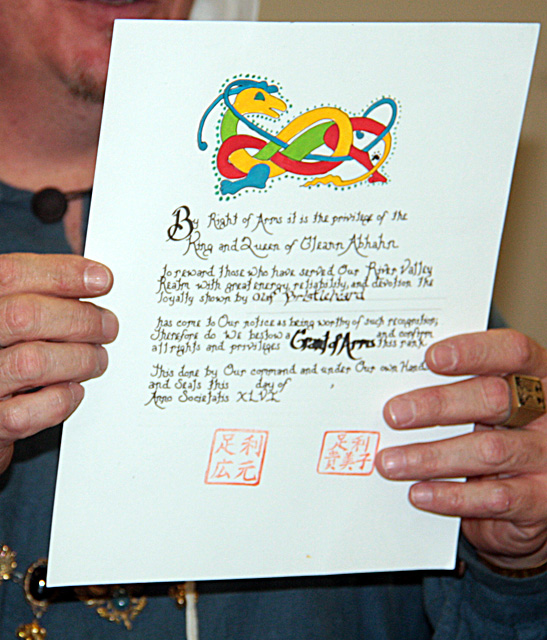 By Right of Arms it is the privilege of the
King and Queen of Gleann Abhann
to reward those who have served Our River Valley
Realm with great energy, reliability, and devotion. the
loyalty shown by
has come to Our notice as being worthy of such recognition;
Therefore do We bestow a Grant of Arms and confirm
all rights and privileges this rank.
This done by Our command and under Our own Hand
and Seals this day of ,
Anno Societatis XLVI
足利 足利
広元 貴美子